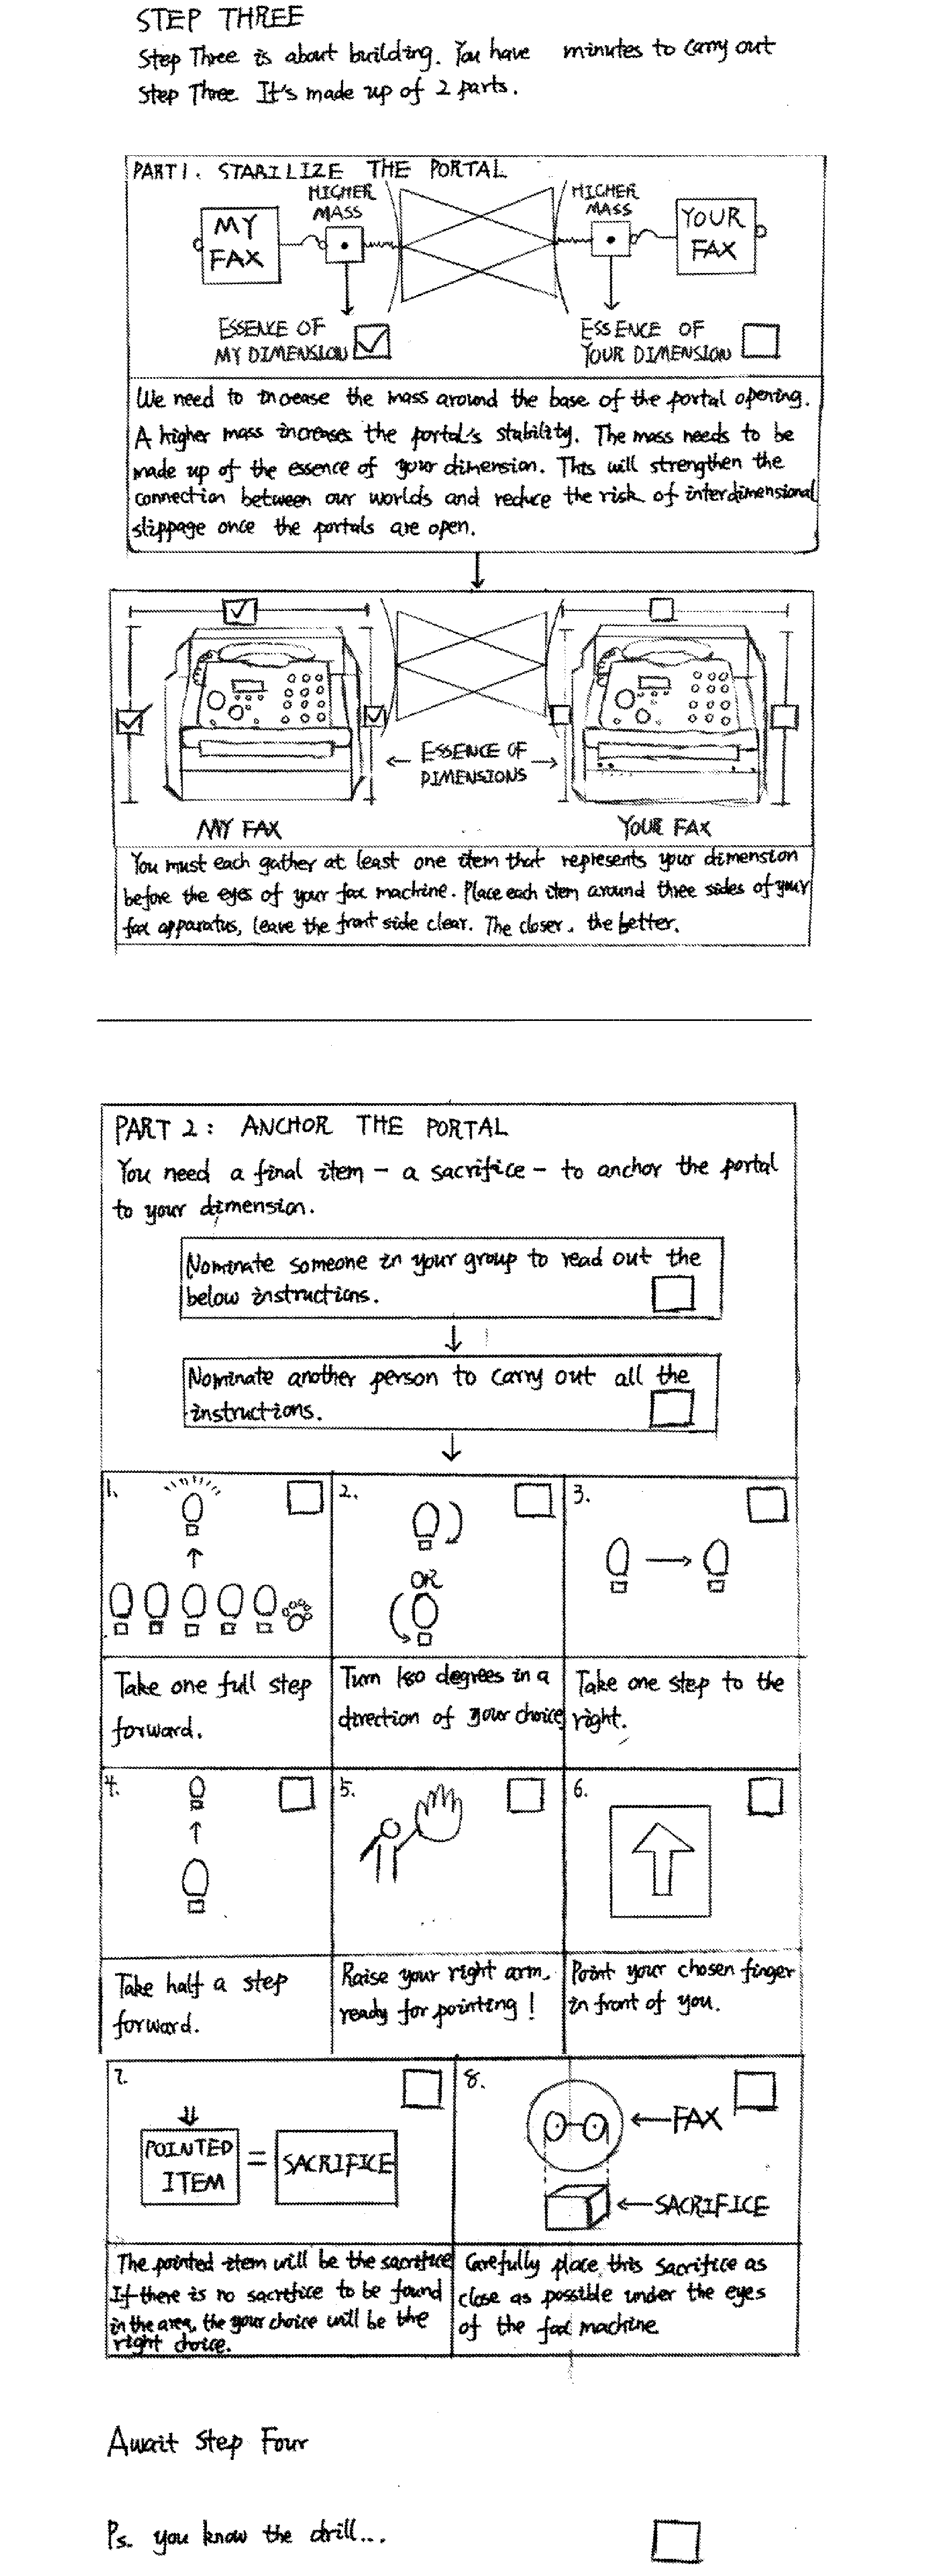 STEP THREE
Step Three is about building. You have minutes to carry out
Step Three It's made up of 2 parts.
PART 1. STABILIZE THE PORTAL
HIGHER
MASS
HIGHER
MASS
MY
FAX
YOUR
FAX
ESSENCE OF
MY DIMENSION
ESSENCE OF
YOUR DIMENSION
We need to increase the mass around the base of the portal opening.
A higher mass increases the portal's stability. The mass needs to be
made up of the essence of your dimension. This will strengthen the
connection between our worlds and reduce the risk of interdimensional
slippage once the portals are open.
ESSENCE OF
DIMENSIONS
MY FAX
YOUR FAX
You must each gather at least one item that represents your dimension
before the eyes of your fax machine. Place each item around three sides of your
fax apparatus, leave the front side clear. The closer, the better.
PART 2: ANCHOR THE PORTAL
You need a final item - a sacrifice - to anchor the portal
to your dimension.
Nominate someone in your group to read out the
below instructions.
Nominate another person to carry out all the
instructions.
1.
Take one full step
forward.
2.
OR
Turn 180 degrees in a
direction of your choice
3.
Take one step to the
right.
4.
Take half a step
forward.
5.
Raise your right arm,
ready for pointing!
6.
Point your chosen finger
in front of you.
7.
POINTED
ITEM
=
SACRIFICE
The pointed item will be the sacrifice
If there is no sacrifice to be found
in the area, the your choice will be the
right choice.
8.
FAX
SACRIFICE
Carefully place this sacrifice as
close as possible under the eyes
of the fax machine.
Await Step Four
Ps. you know the drill...